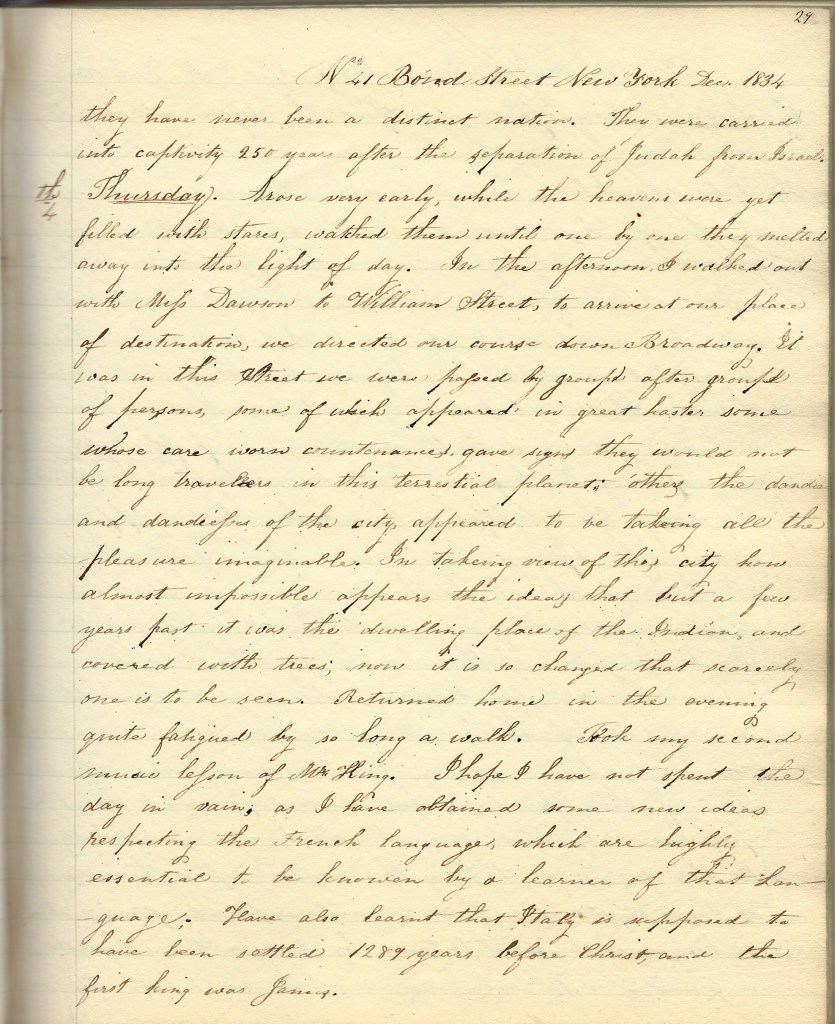 29
No 41 Bond Street New York Dec. 1834
they have never been a distinct nation. They were carried
into captivity 250 years after the separation of Judah from Israel.
th
4
Thursday. Arose very early, while the heavens were yet
filled with stares, watched them until one by one they melted
away into the light of day. In the afternoon I walked out
with Miss Dawson to William Street, to arrive at our place
of destination, we directed our course down Broadway. It
was in this Street we were passed by groups after groups
of persons, some of wich appeared in great haste some
whose care worn countenances gave signs they would not
be long travellers in this terrestial planet; others the dandies
and dandiesses of the city, appeared to be takeing all the
pleasure imaginable. In takeing view of this city how
almost impossible appears the idea, that but a few
years past it was the dwelling place of the Indian, and
covered with trees; now it is so changed that scarcely
one is to be seen. Returned home in the evening
quite fatigued by so long a walk. Took my second
music lesson of Mr King. I hope I have not spent the
day in vain; as I have obtained some new ideas
respecting the French language, which are highly
essential to be knowen by a learner of that Lan-
-guage. Have also learnt that Italy is supposed to
have been settled 1289 years before Christ, and the
first king was Janus.